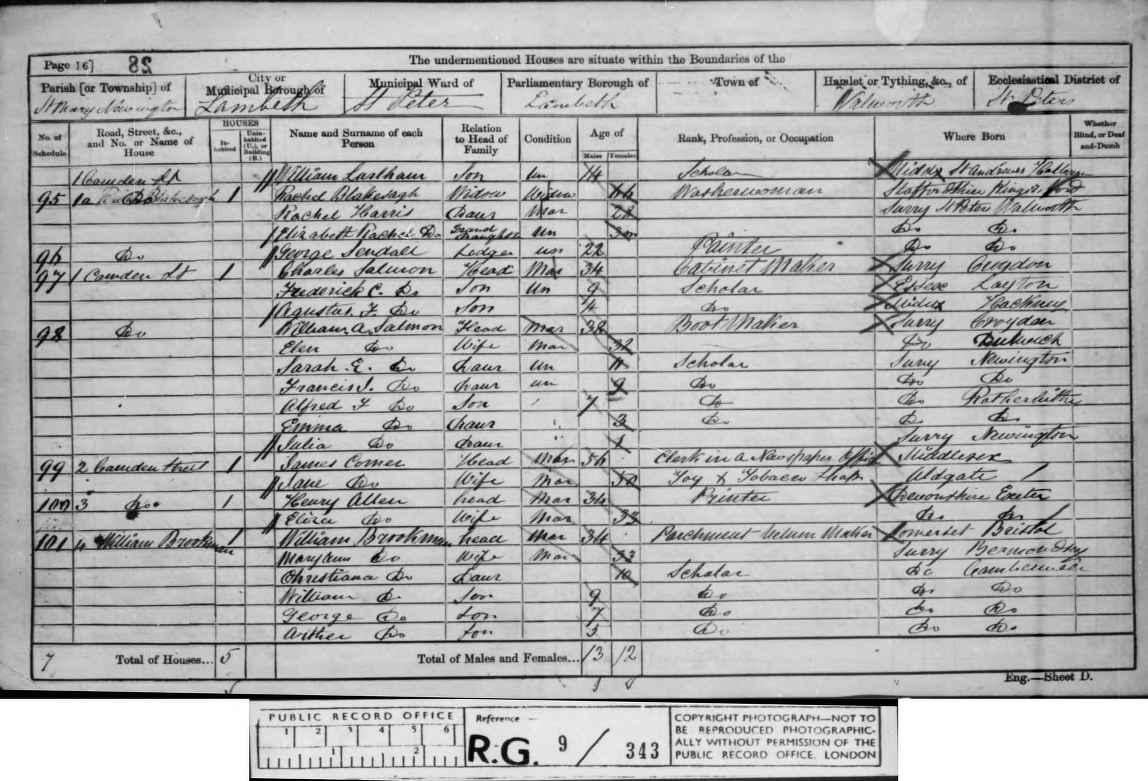 Page 16] 28 The undermentioned Houses are situate within the Boundaries of the
Parish [or Township] of City or Municipal Borough of Municipal Ward of Parliamentary Borough of Town of Hamlet or Tything, &c., of Ecclesiastical District of
St Mary Newington Lambeth St Peter Lambeth Walworth St Peters
No. of Schedule Road, Street, &c., and No. or Name of House HOUSES Inhabited Uninhabited (U.), or Building (B.) Name and Surname of each Person Relation to Head of Family Condition Age of Males Females Rank, Profession, or Occupation Where Born Whether Blind, or Deaf and-Dumb
1 Camden St William Son Un 14 Scholar Middx St Andrews
95 1a 1 Rachel Widow Widow Washerwoman
Rachel Harris Daur Mar Surry St Peter Walworth
Elizabeth Rachel Do Grand Daughter Un Do Do
96 Do George Sendall Lodger un 22 Painter Do Do
97 1 Camden St 1 Charles Salmon Head Mar 34 Cabinet Maker Surry Croydon
Frederick C. Do Son Un 9 Scholar Essex Layton
Agustus F. Do Son 4 Do Middx Hackney
98 Do William A. Salmon Head Mar 38 Boot Maker Surry Croydon
Elen Do Wife Mar 32 Do Dulwich
Sarah E. Do Daur Un 11 Scholar Surry Newington
Francis S. Do Daur un 9 Do Do Do
Alfred F Do Son 7 Do Do Rotherhithe
Emma Do Daur 3 Do Do Do
Julia Do Daur 1 Surry Newington
99 2 Camden Street 1 James Comer Head Mar 56 Clerk in a Newspaper Office Middlesex
Jane Do Wife Mar 50 Toy & Tobacco Shop Aldgate
100 3 Do 1 Henry Allen head Mar 34 Printer Devonshire Exeter
Eliza Do Wife Mar 33 Do Do
101 4 William Brookman 1 William Brookman head Mar 34 Parchment Velum Maker Somerset Bristol
Mary Ann Do Wife Mar 33 Surry Bermondsy
Christiana Do Daur 10 Scholar Do Camberwell
William Do Son 9 Do Do Do
George Do Son 7 Do Do Do
Arther Do Son 5 Do Do Do
7 Total of Houses... 5 Total of Males and Females... 13 12
Eng.—Sheet D.
PUBLIC RECORD OFFICE
1 2 3 4 5 6
1 2
Reference —
R.G. 9 / 343
COPYRIGHT PHOTOGRAPH—NOT TO
BE REPRODUCED PHOTOGRAPHIC-
ALLY WITHOUT PERMISSION OF THE
PUBLIC RECORD OFFICE, LONDON